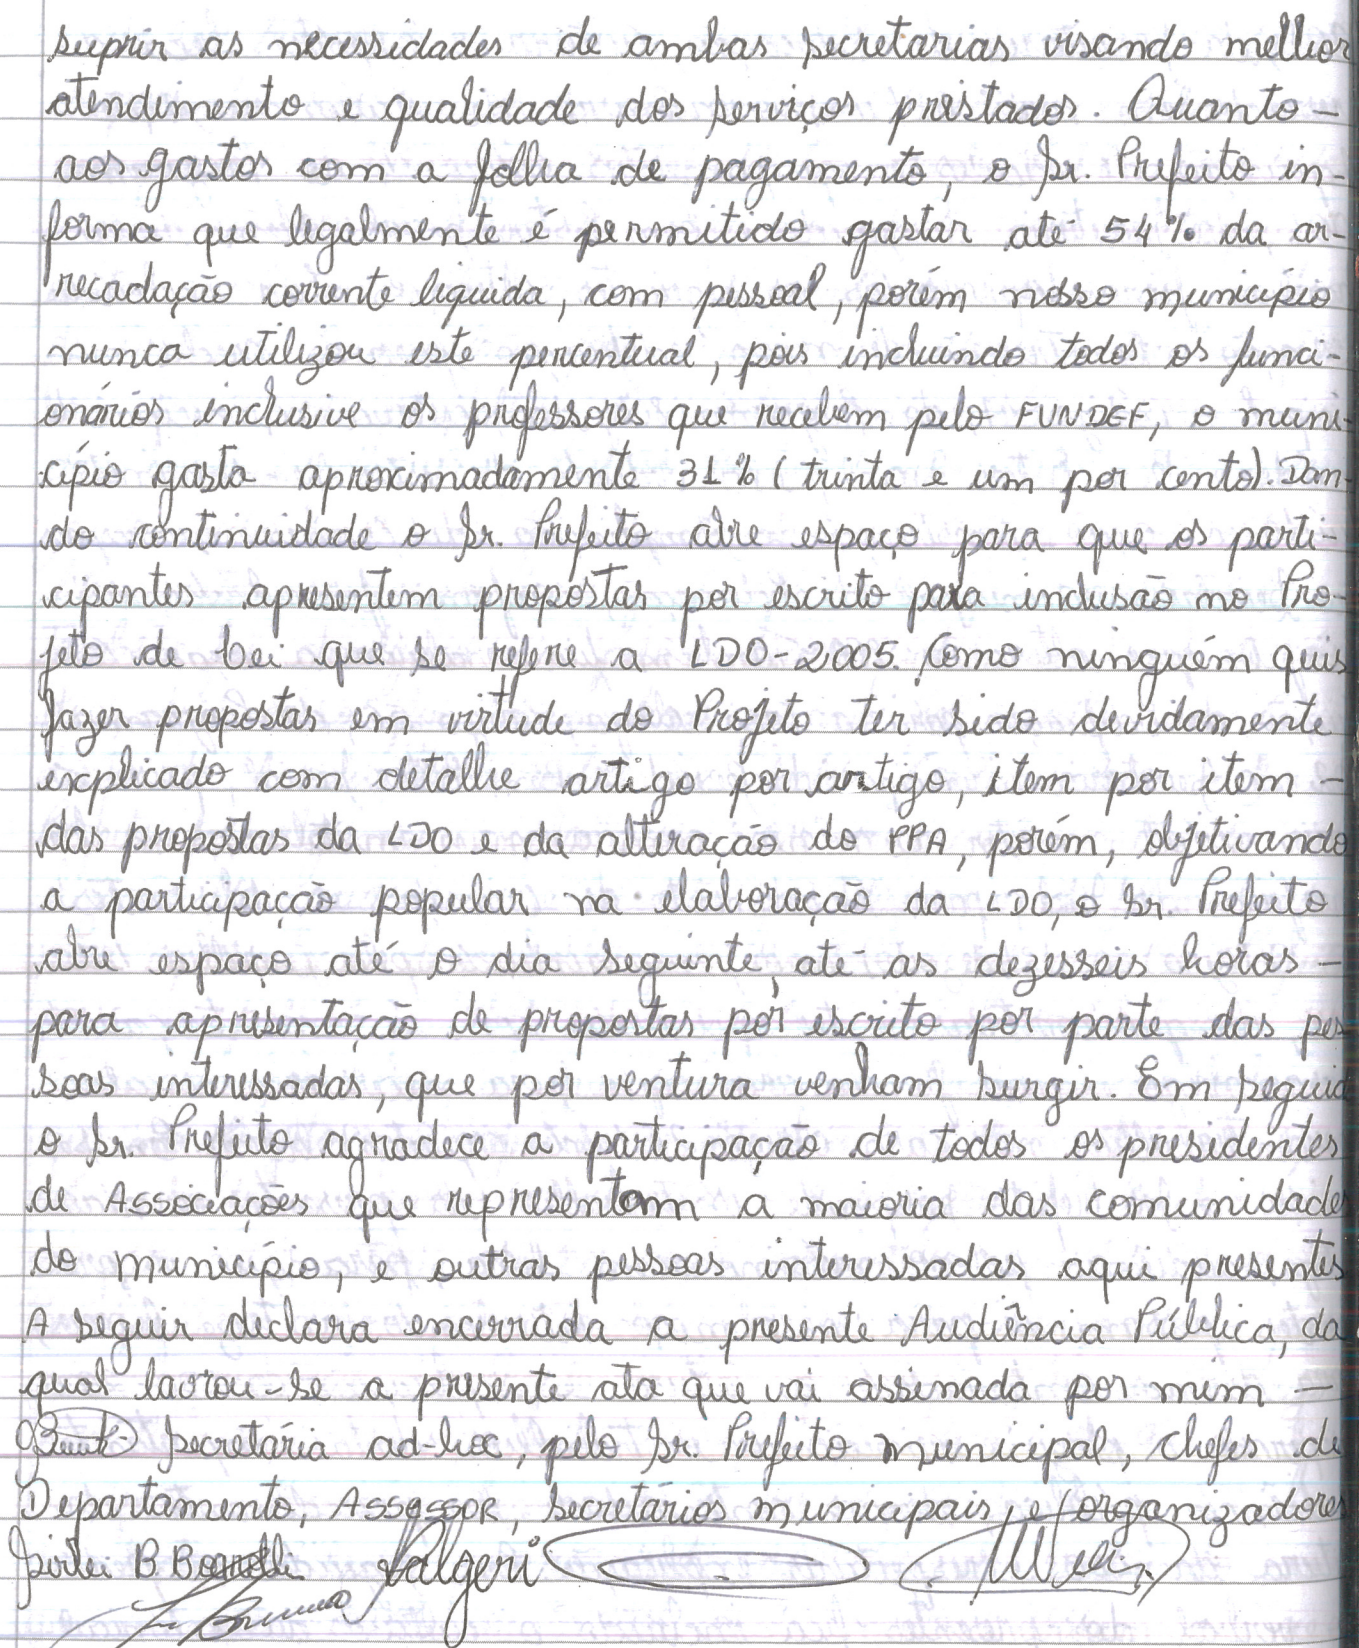 suprir as necessidades de ambas secretarias visando melhor
atendimento e qualidade dos serviços prestados. Quanto –
aos gastos com a folha de pagamento, o Sr. Prefeito in-
forma que legalmente é permitido gastar até 54% da ar-
recadação corrente líquida, com pessoal, porém nosso município
nunca utilizou este percentual, pois incluindo todos os funci-
onários inclusive os professores que recebem pelo FUNDEF, o muni-
cípio gasta aproximadamente 31% (trinta e um por cento). Dan-
do continuidade o Sr. Prefeito abre espaço para que os parti-
cipantes apresentem propostas por escrito para inclusão no Pro-
jeto de Lei que se refere a LDO-2005. Como ninguém quis
fazer propostas em virtude do Projeto ter sido devidamente
explicado com detalhe artigo por artigo, item por item –
das propostas da LDO e da alteração do PPA, porém, objetivando
a participação popular na elaboração da LDO, o Sr. Prefeito
abre espaço até o dia seguinte, até as dezesseis horas –
para apresentação de propostas por escrito por parte das pes
soas interessadas, que por ventura venham surgir. Em seguid
o Sr. Prefeito agradece a participação de todos os presidentes
de Associações que representam a maioria das comunidades
do município, e outras pessoas interessadas aqui presentes
A seguir declara encerrada a presente Audiência Pública, da
qual lavrou-se a presente ata que vai assinada por mim –
secretária ad-hoc, pelo Sr. Prefeito municipal, chefes de
Departamento, Assessor, secretários municipais, e organizadores
B.